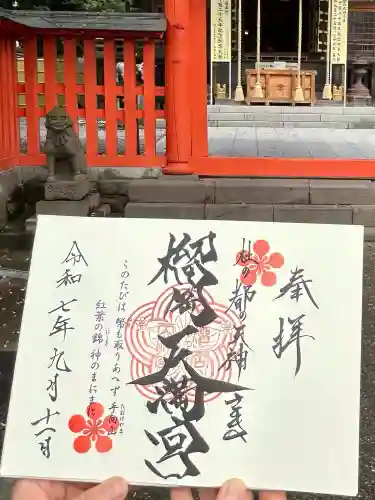 奉拝
杜の都の天神さま
榴岡天満宮
このたびは 幣も取りあへず 手向山
紅葉の錦 神のまにまに
令和七年九月十一日